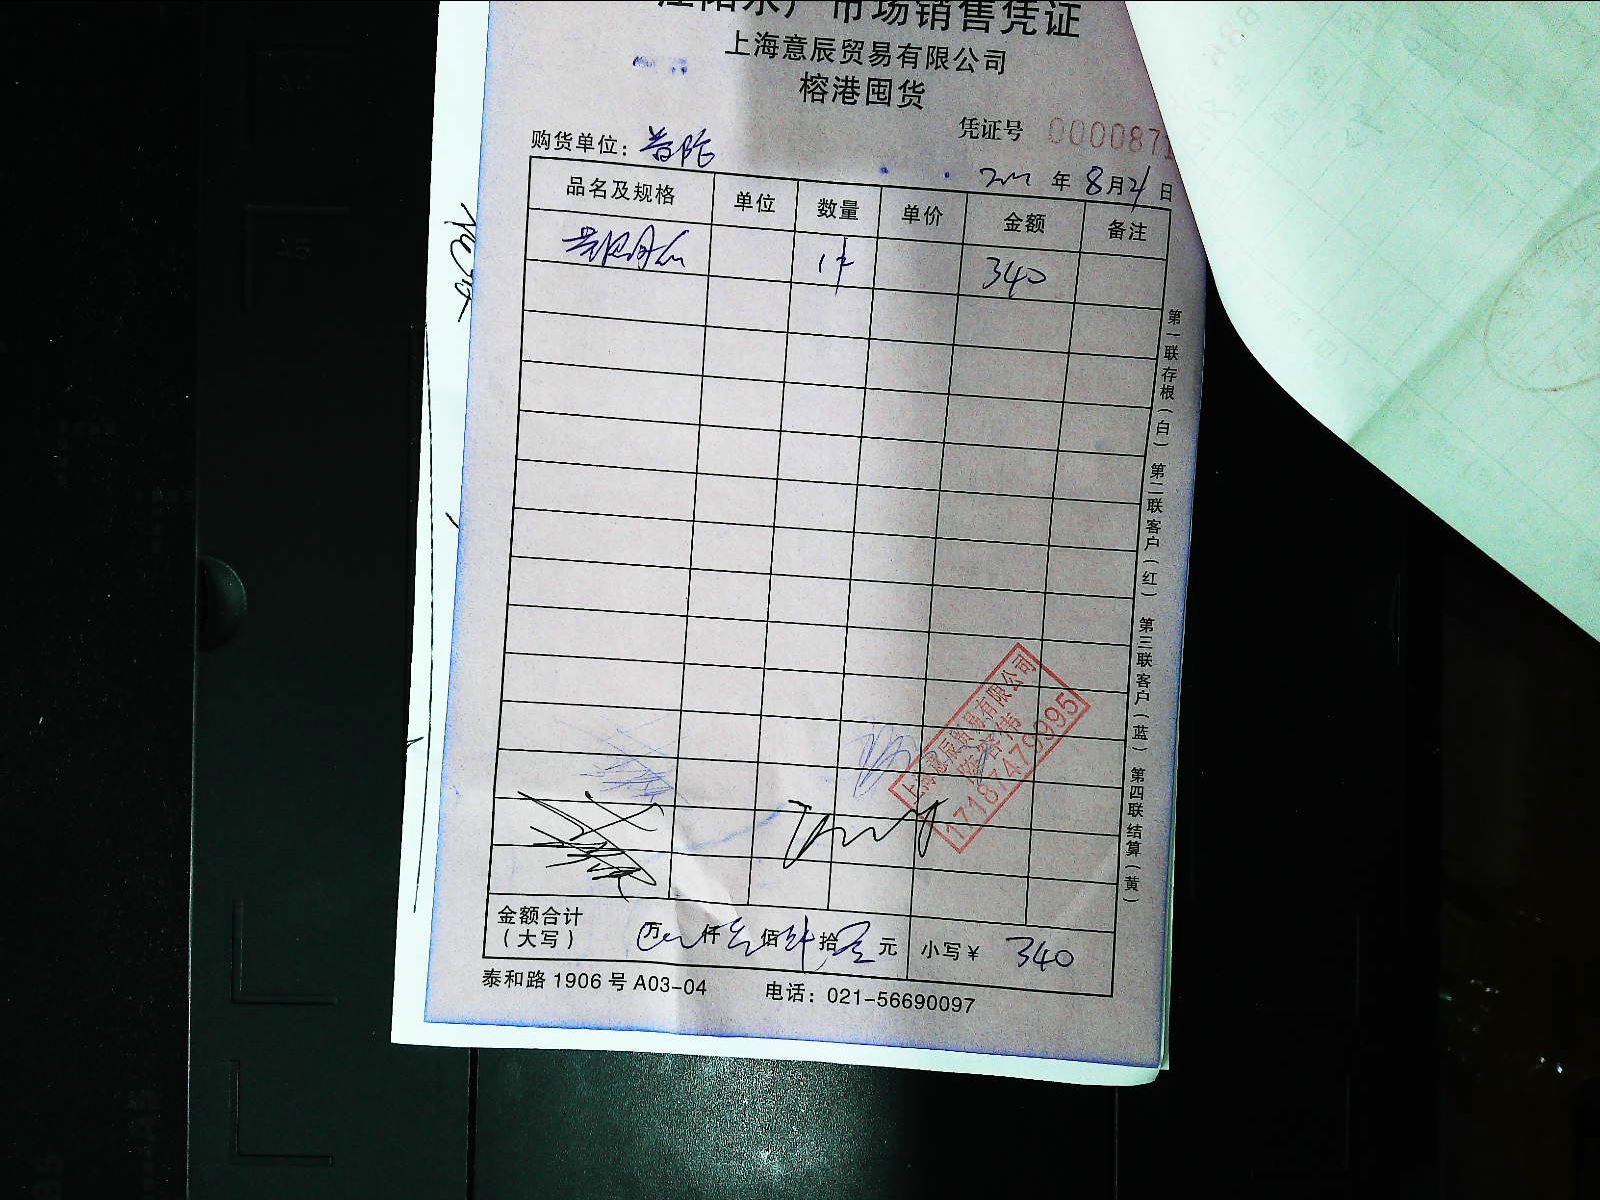 市场销售凭证
上海意辰贸易有限公司
榕港囤货
凭证号 000087
购货单位：普陀
年 8月21日
品名及规格 单位 数量 单价 金额 备注
1件 340
第一联存根（白） 第二联客户（红） 第三联客户（蓝） 第四联结算（黄）
上海意辰贸易有限公司
17187479995
金额合计（大写） 万 仟 叁佰 肆拾 元 小写¥ 340
泰和路1906号A03-04 电话：021-56690097